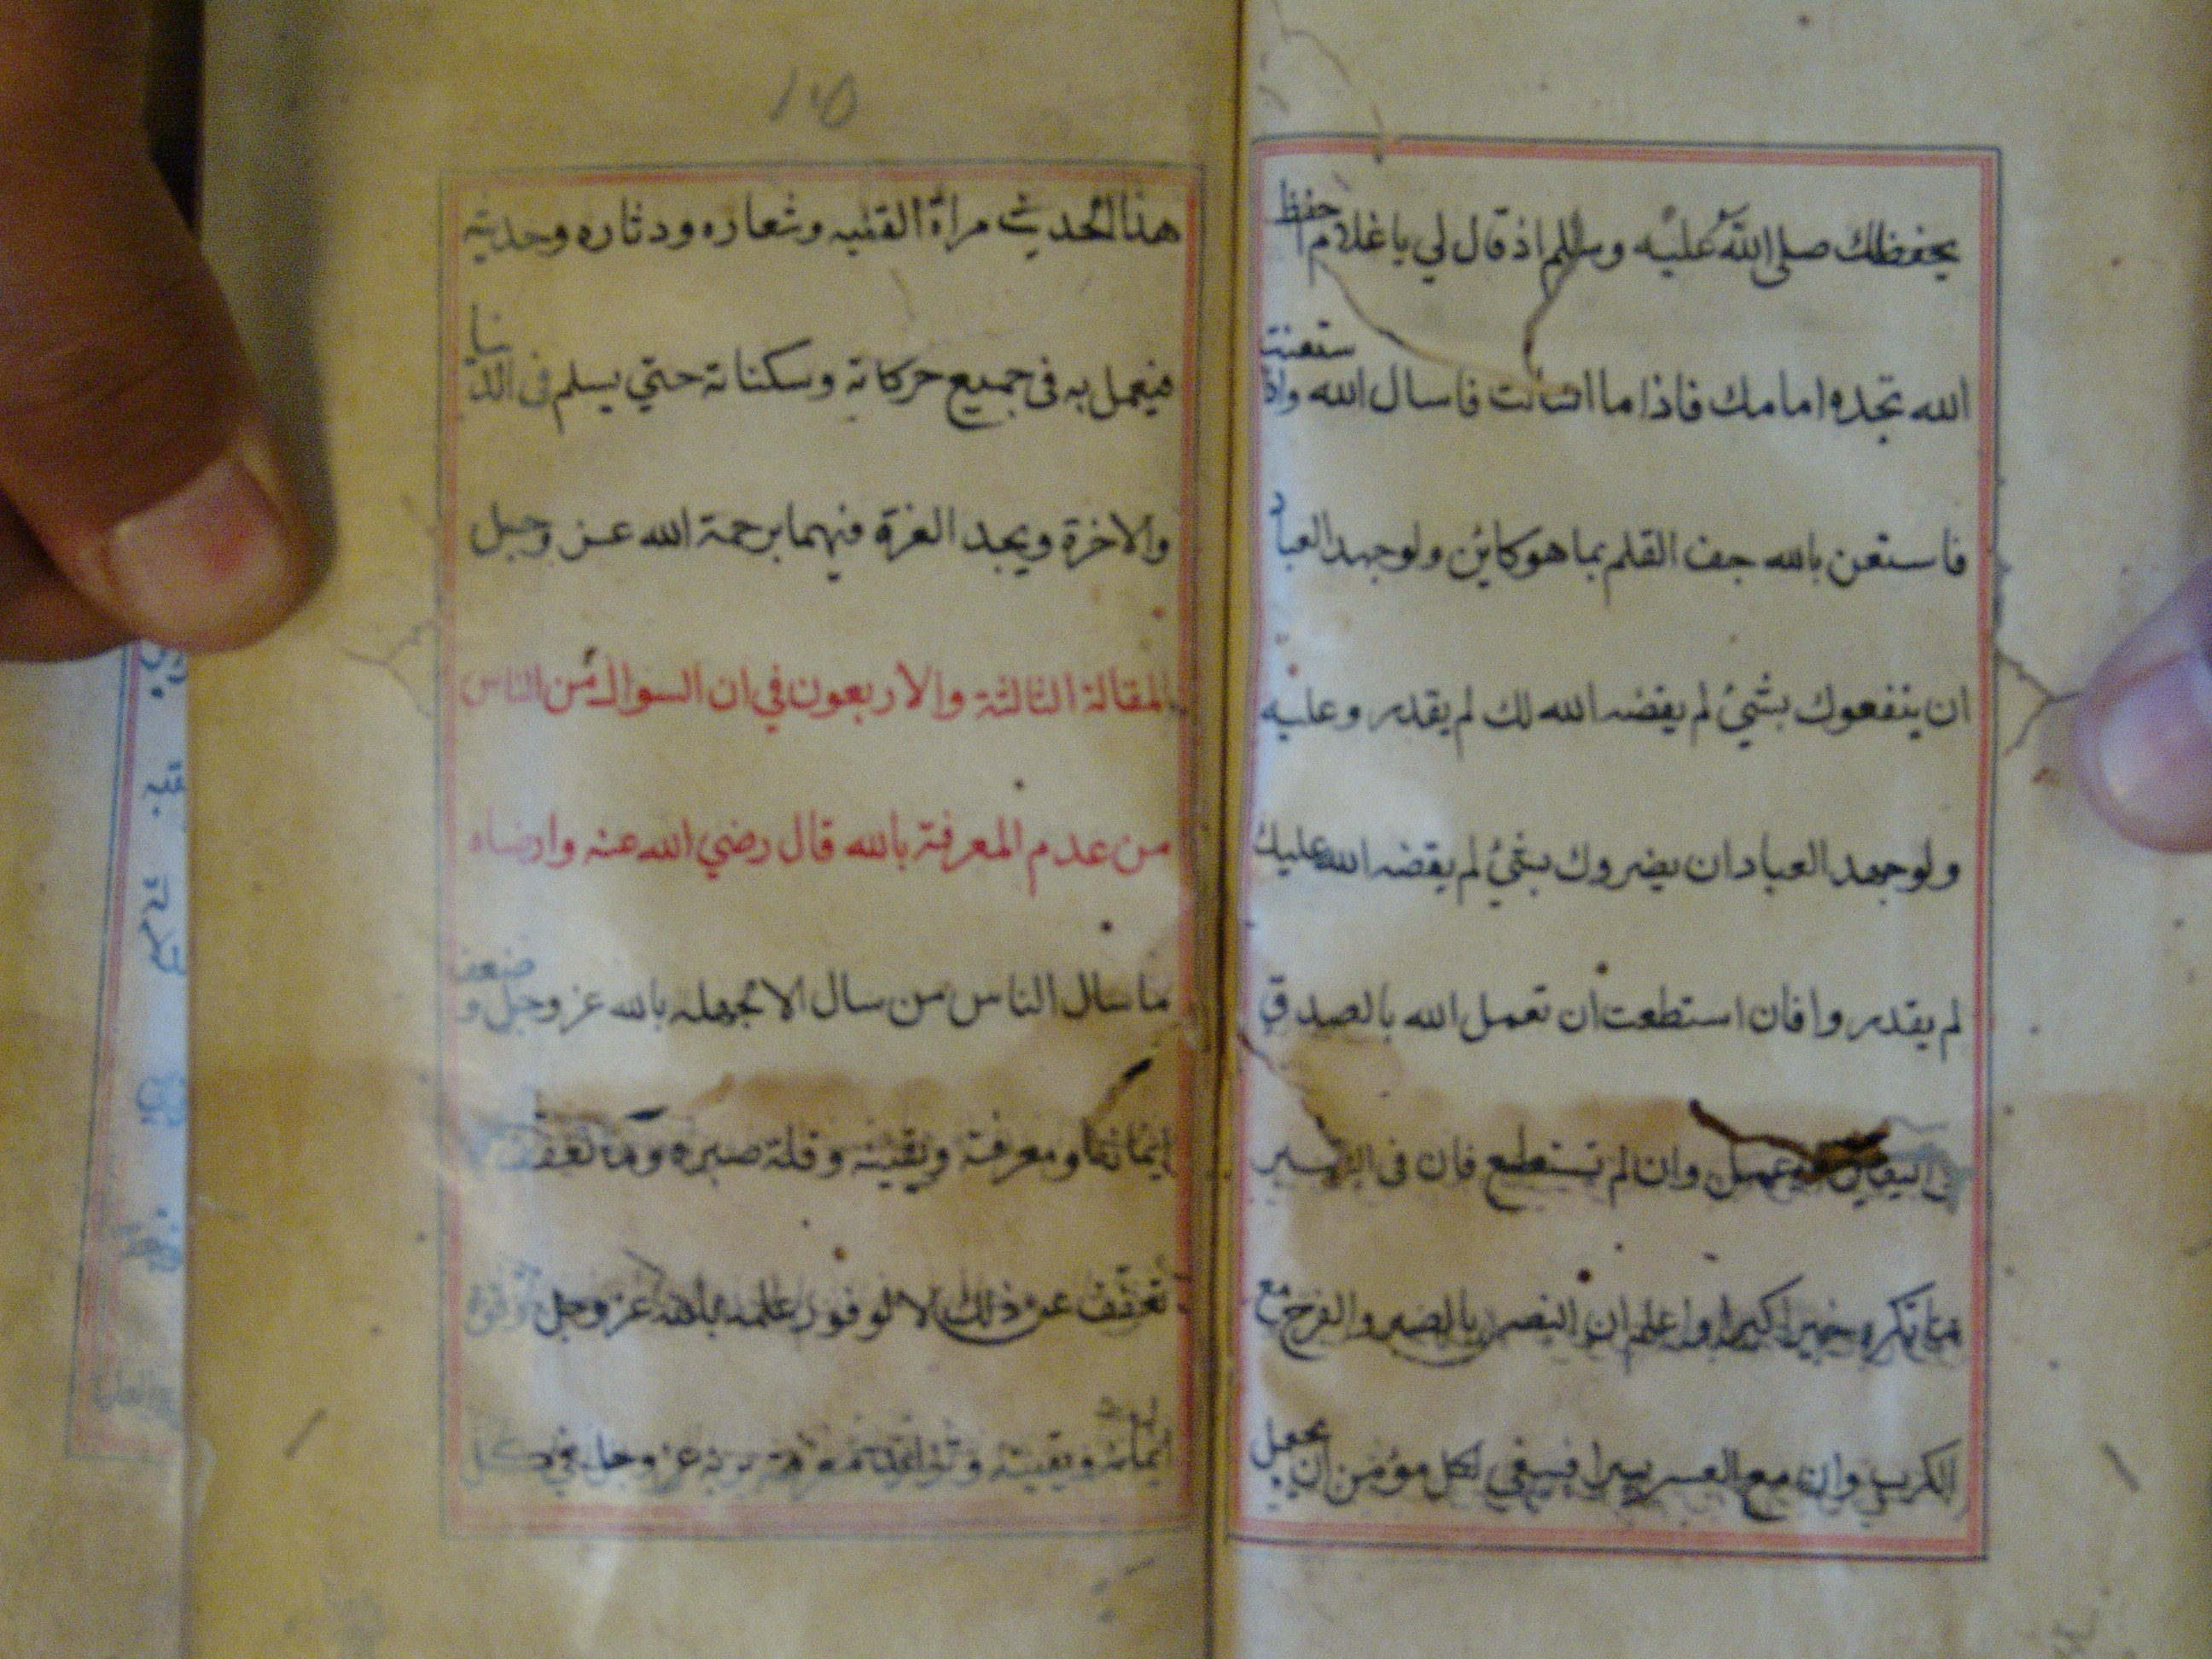 يحفظك صلى الله عليه وسلم اذ قال لي يا غلام احفظ
الله تجده امامك فاذا ما سالت فاسال الله واذا ستعنت
فاستعن بالله جف القلم بما هو كاين ولو جهد العباد
ان ينفعوك بشيئ لم يقضه الله لك لم يقدر وعليه
ولو جهد العباد ان يضروك بشئ لم يقضه الله عليك
لم يقدر وا فان استطعت ان تعمل الله بالصدق
اليقين عمل وان لم تستطيع فان في
ما تكره خيرا كثيرا واعلم ان النصر بالصبر والفرج مع
الكرب وان مع العسر يسرا فينبغي لكل مؤمن ان يجعل
١٠٥
هذا الحديث مراة القلبه وشعاره ودثاره وحديثه
فيعمل به في جميع حركاته وسكناته حتي يسلم في الدنيا
والاخرة ويجد العزة فيهما برحمة الله عز وجل
المقالة الثالثة والاربعون في ان السوال من الناس
من عدم المعرفة بالله قال رضي الله عنه وارضاه
ما سال الناس من سال الا لجهله بالله عز وجل وضعف
ايمانه ومعرفة ويقينه وقلة صبره وما تعفف
تعفف عن ذلك الا لوفور علمه بالله عز وجل وقوة
ايمانه ويقينه وتزايد معرفته بربه عز وجل في كل